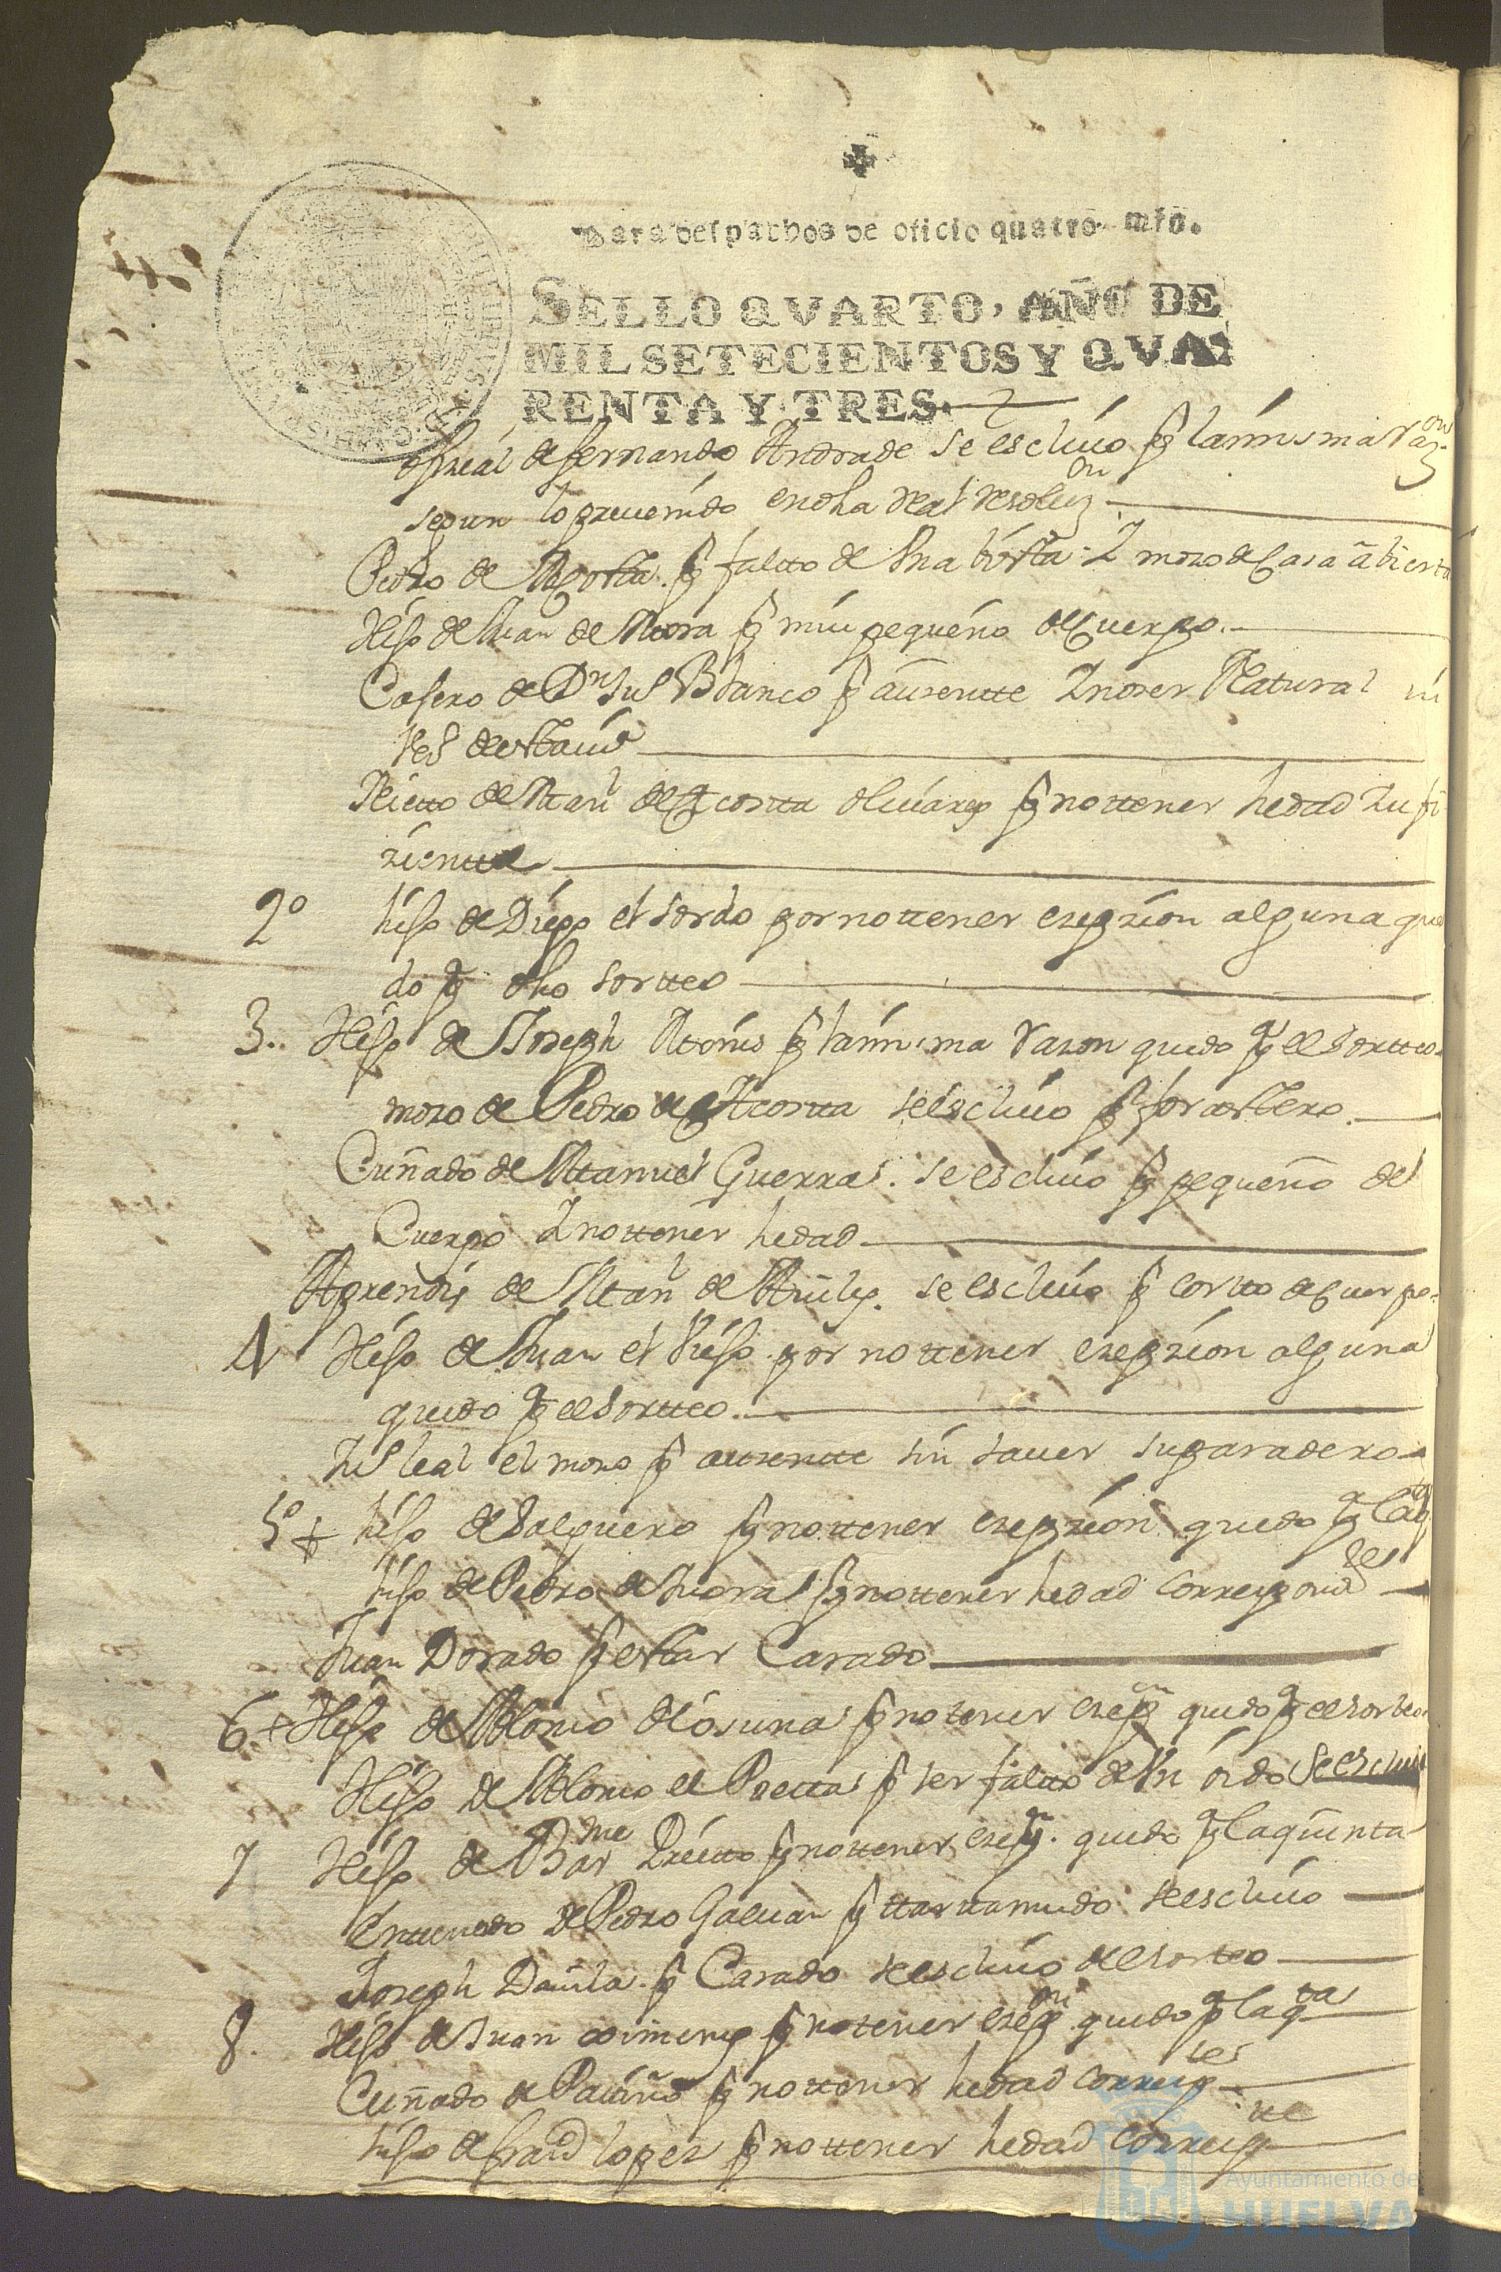 Para despachos de oficio quatro mrs.
SELLO QVARTO, AÑO DE
MIL SETECIENTOS Y QVA-
RENTA Y TRES.
de fernando Andrade se escluio p.r la mis ma raz.on
segun lo prevenido en dha Real resoluz.on
Pedro de Acosta p.r falto de una vista Y mozo de Casa abierta
Hijo de Juan de Mora p.r mui pequeño de Cuerpo.
Casero de D.n Blanco p.r ausentte Y no ser Natural ni
de esta
Nietto de Man.l de Acosta p.r no ttener hedad sufi
zientte
2º hijo de Diego el sordo por no ttener exepzion alguna que
do p.a dho sortteo
3. Hijo de Joseph p.r la mis ma razon quedo p.a el sortteo
mozo de Pedro de Acosta se escluio p.r forastero.
Cuñado de Manuel Guerra. se escluio p.r pequeño de
Cuerpo Y no ttener hedad
Aprendis de Man.l de se escluio p.r cortto de Cuerpo.
4 Hijo de Juan el Viejo por no ttener exepzion alguna
quedo p.a el sortteo.
leal el mozo p.r ausentte sin saver su paradero
5º + hijo de Salguero p.r no ttener exepzion quedo p.a la q.ta
hijo de Pedro de Mora p.r no ttener hedad correspond
Juan Dorado p.r estar Casado
6 + Hijo de Alonso de Osuna p.r no tener exep.on quedo p.a el sorteo
Hijo de Alonso el p.r ser faltto de Un oido se escluio
7 Hijo de Bar.me Prietto p.r no ttener exep.n quedo p.a la quinta
Enttenado de Pedro Galuan p.r ttarttamudo se escluio
Joseph Dauila p.r Casado se escluio del sorteo
8. Hijo de Juan ximenez p.r no tener exep.on quedo p.a la q.ta
Cuñado de p.r no ttener hedad corresp
hijo de fran.co lopez p.r no ttener hedad corresp
Ayuntamiento de
HUELVA